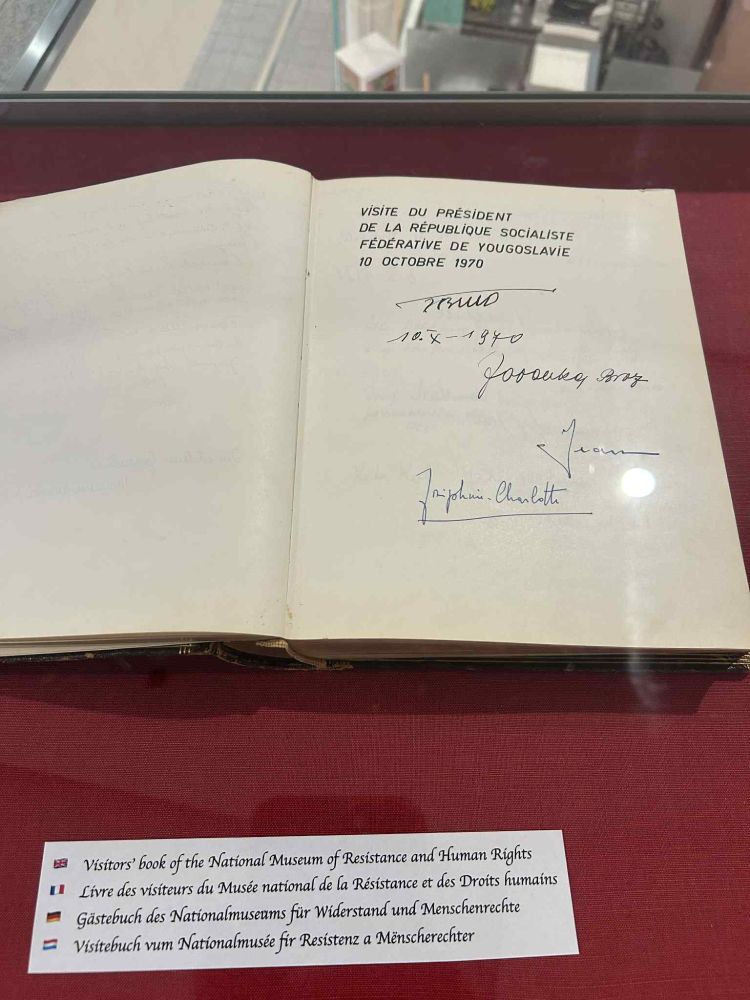 VISITE DU PRÉSIDENT
DE LA RÉPUBLIQUE SOCIALISTE
FÉDÉRATIVE DE YOUGOSLAVIE
10 OCTOBRE 1970
10.X-1970
Jovanka Broz
Jean
Joséphine-Charlotte
Visitors' book of the National Museum of Resistance and Human Rights
Livre des visiteurs du Musée national de la Résistance et des Droits humains
Gästebuch des Nationalmuseums für Widerstand und Menschenrechte
Visitebuch vum Nationalmusée fir Resistenz a Mënscherechter